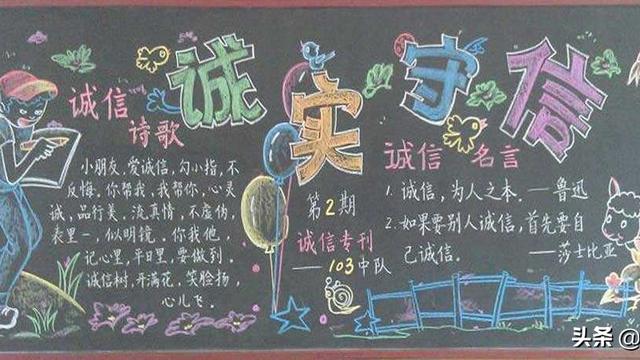 诚实守信
诚信
诗歌
小朋友,爱诚信,勾小指,不
反悔。你帮我,我帮你,心灵
诚,品行美,流真情,不虚伪,
表里一,似明镜。你我他,
记心里,平日里,要做到。
诚信树,开满花,笑脸扬,
心儿飞。
第2期
诚信专刊
——103中队
诚信名言
1. 诚信,为人之本。——鲁迅
2. 如果要别人诚信,首先要自
己诚信。
——莎士比亚
头条 @